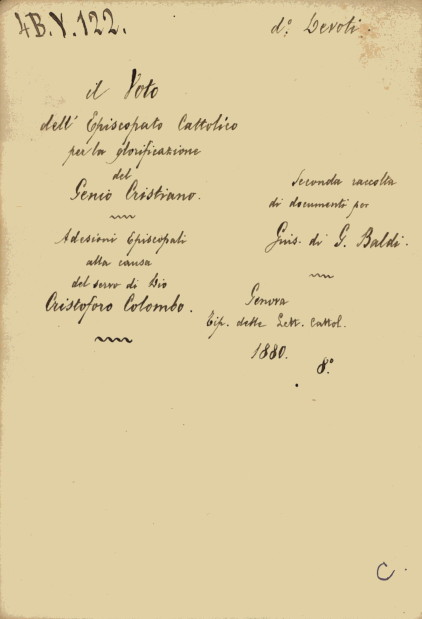 4B.V.122.
d°. Devoti.
il Voto
dell' Episcopato Cattolico
per la glorificazione
del
Genio Cristiano.
Adesioni Episcopali
alla causa
del servo di Dio
Cristoforo Colombo.
Seconda raccolta
di documenti per
Gius. di G. Baldi.
Genova
Tip. delle Lett. Cattol.
1880.
8°.
C